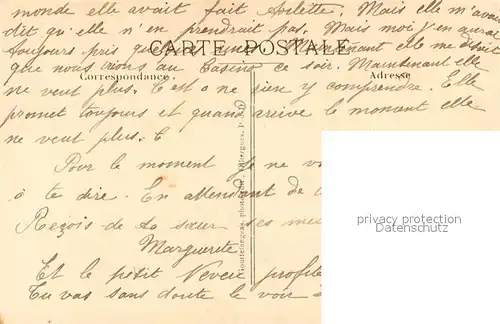 monde elle avait fait toilette. Mais elle m'avait
dit qu'elle n'en prendrait pas. Mais moi j'en aurai
toujours pris
CARTE POSTALE
Maintenant elle me disait
que nous irions au Casino ce soir. Maintenant elle
Correspondance.
Adresse
ne veut plus. C'est à ne rien y comprendre. Elle
promet toujours et quand arrive le moment elle
ne veut plus.
Pour le moment je ne
à te dire. En attendant de
Reçois de ta sœur ses
Marguerite
Et le petit Neveu profite
Tu vas sans doute le voir
privacy protection
Datenschutz